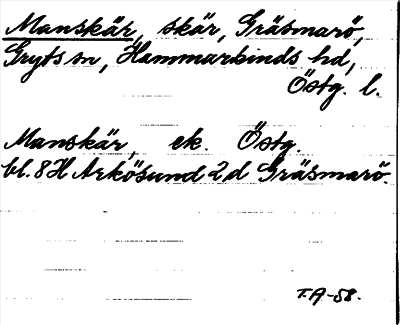 Manskär, skär, Gräsmarö,
Gryts sn, Hammarkinds hd,
Östg. l.
Manskär, ek. Östg.
bl. 8H Arkösund 2d Gräsmarö.
T.A-58.